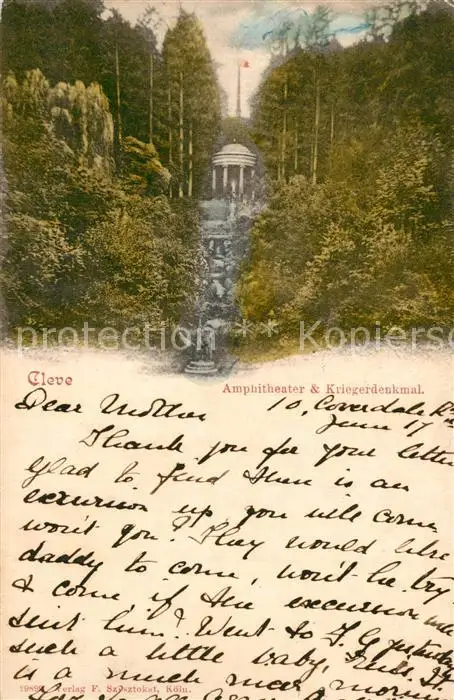 protection ** Kopierschutz
Cleve
Amphitheater & Kriegerdenkmal.
Dear Mother 10, Coverdale Rd
June 17
Thank you for your letter
glad to find there is an
excursion up you will come
won't you? They would like
daddy to come, won't he try
& come if the excursion will
suit him? Went to
such a little baby,
is a much more
Verlag F. Szésztokat, Köln.